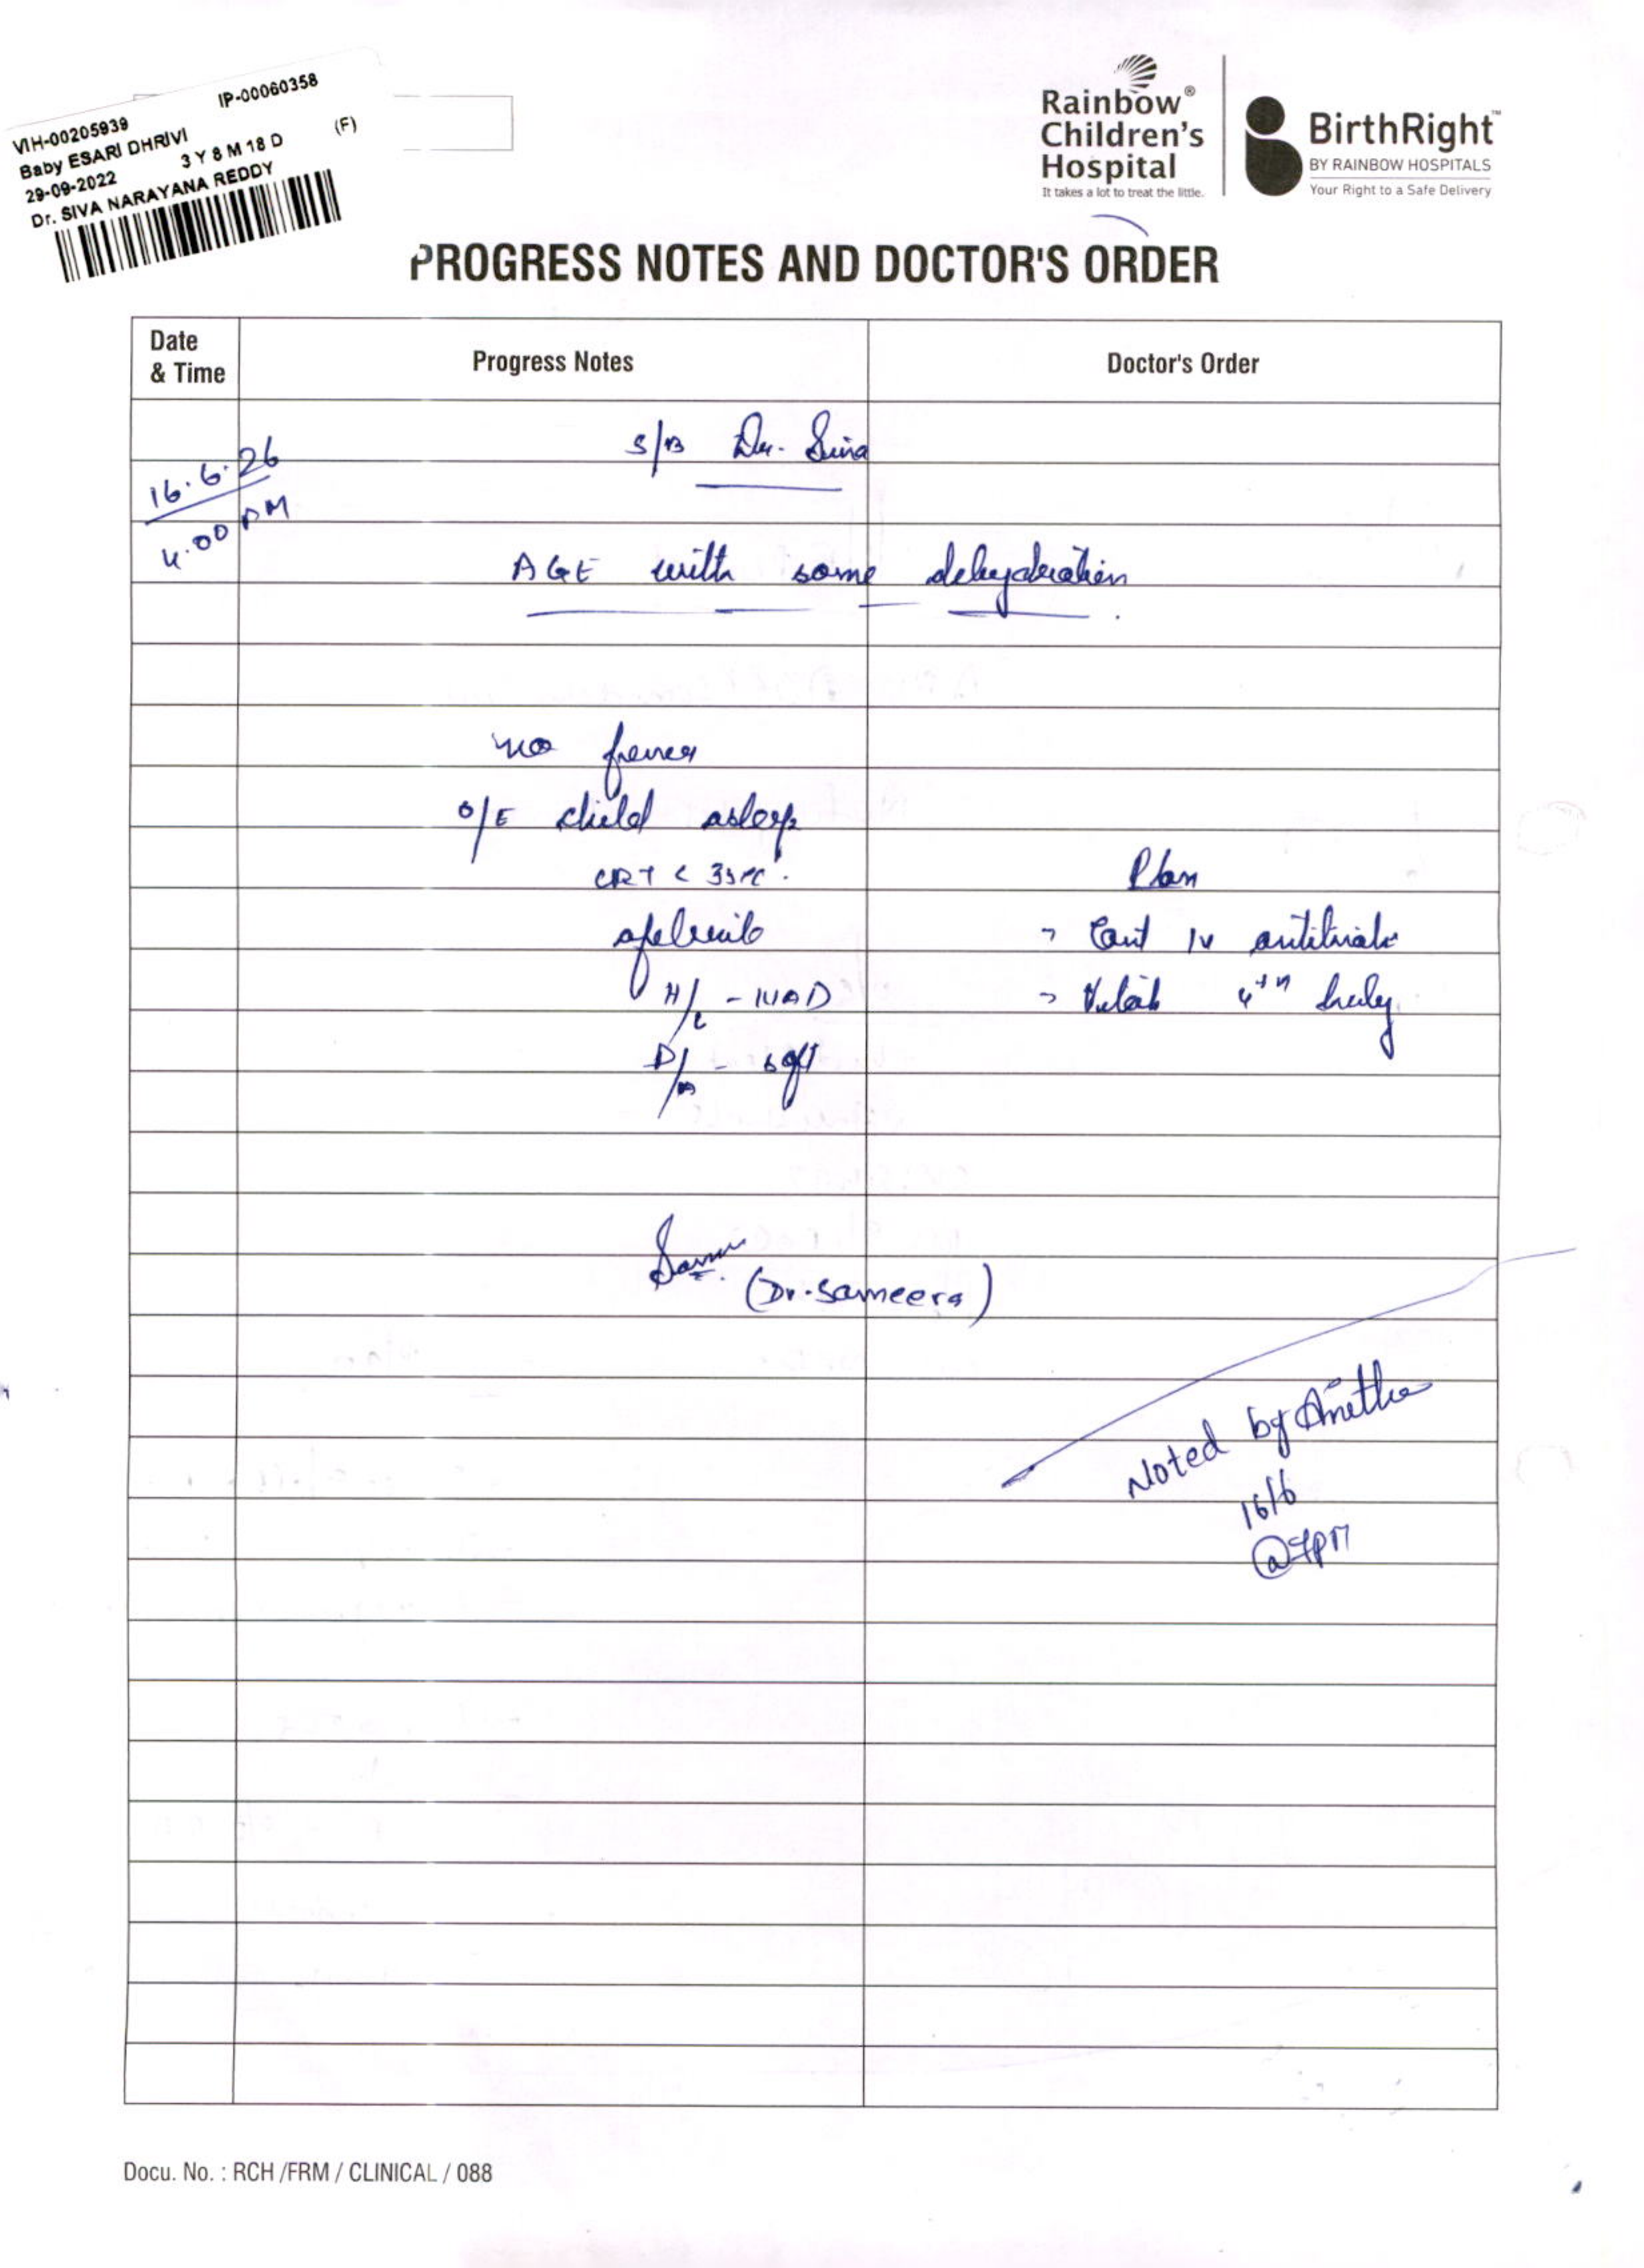 IP-00060358
VIH-00205939
Baby ESARI DHRIVI
29-09-2022 3 Y 8 M 18 D (F)
Dr. SIVA NARAYANA REDDY
Rainbow®
Children's
Hospital
It takes a lot to treat the little.
BirthRight™
BY RAINBOW HOSPITALS
Your Right to a Safe Delivery
PROGRESS NOTES AND DOCTOR'S ORDER
Date
& Time
Progress Notes
Doctor's Order
S/B Dr. Siva
16.6.26
4.00 PM
AGE with some dehydration.
no fever
O/E child asleep
CRT < 3sec.
Plan
afebrile
→ Cont IV
H/L - NAD
→ Vitals 4th hrly
P/A - soft
(Dr. Sameera)
Noted by Anitha
16/6
@4PM
Docu. No. : RCH /FRM / CLINICAL / 088